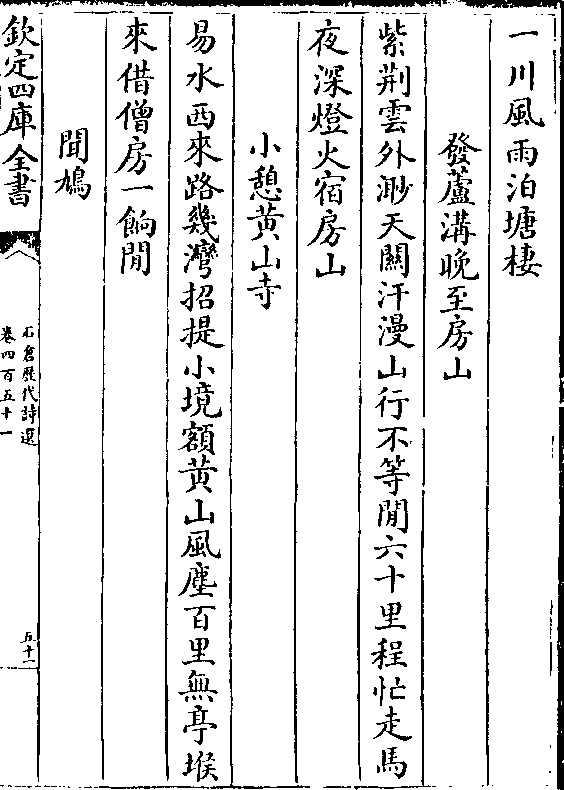 一川風雨泊塘棲
發蘆溝晚至房山
紫荆雲外渺天關汗漫山行不等閒六十里程忙走馬
夜深燈火宿房山
小憩黄山寺
易水西來路幾灣招提小境額黄山風塵百里無亭堠
來借僧房一餉閒
聞鳩
欽定四庫全書
石倉歷代詩選
卷四百五十一
五十一